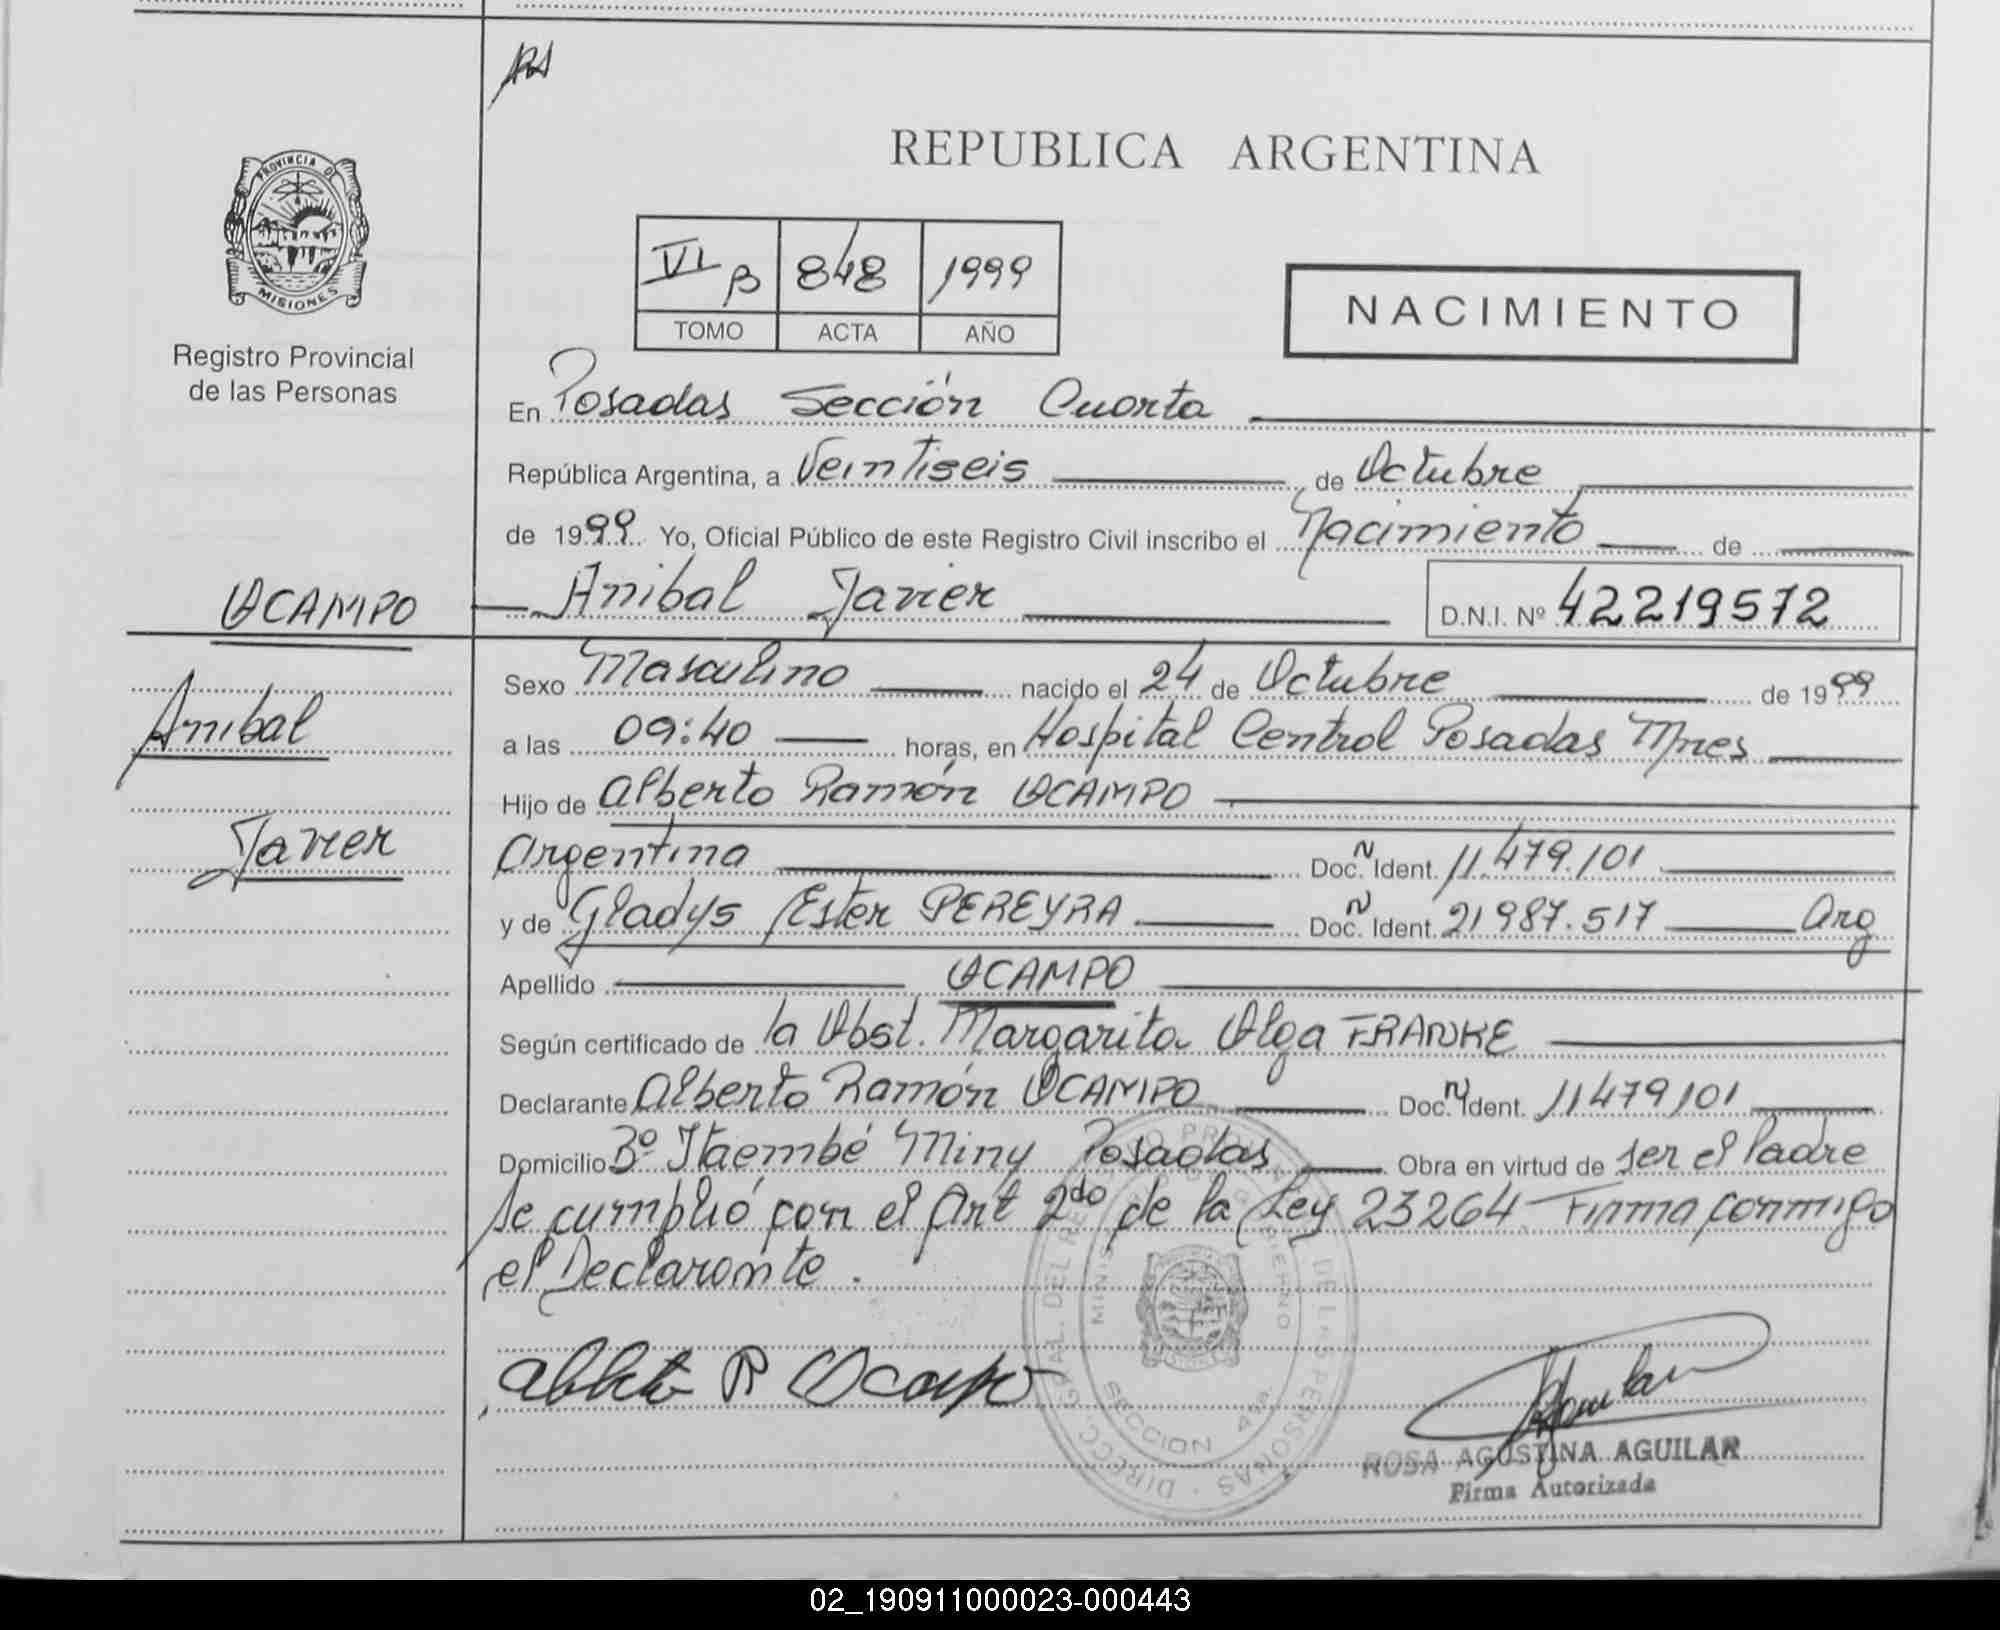 REPUBLICA ARGENTINA
PROVINCIA DE
MISIONES
Registro Provincial
de las Personas
VI B 848 1999
TOMO ACTA AÑO
NACIMIENTO
En Posadas Sección Cuarta
República Argentina, a Veintiseis de Octubre
de 1999. Yo, Oficial Público de este Registro Civil inscribo el Nacimiento de
OCAMPO
Anibal Javier D.N.I. Nº 42219572
Sexo Masculino nacido el 24 de Octubre de 1999
Anibal
a las 09:40 horas, en Hospital Central Posadas Mnes
Hijo de Alberto Ramón OCAMPO
Javier
Argentina Doc. N Ident. 11.479.101
y de Gladys Ester PEREYRA Doc. N Ident. 21987.517 Arg
Apellido OCAMPO
Según certificado de la Obst. Margarita Olga FRANKE
Declarante Alberto Ramón OCAMPO Doc. N Ident. 11479101
Domicilio Bº Itaembé Miny Posadas Obra en virtud de ser el Padre
Se cumplió con el Art 2do de la Ley 23264 Firma conmigo
el Declarante.
Alberto R Ocampo
ROSA AGUSTINA AGUILAR
Firma Autorizada
SECCION 4ta
02_190911000023-000443